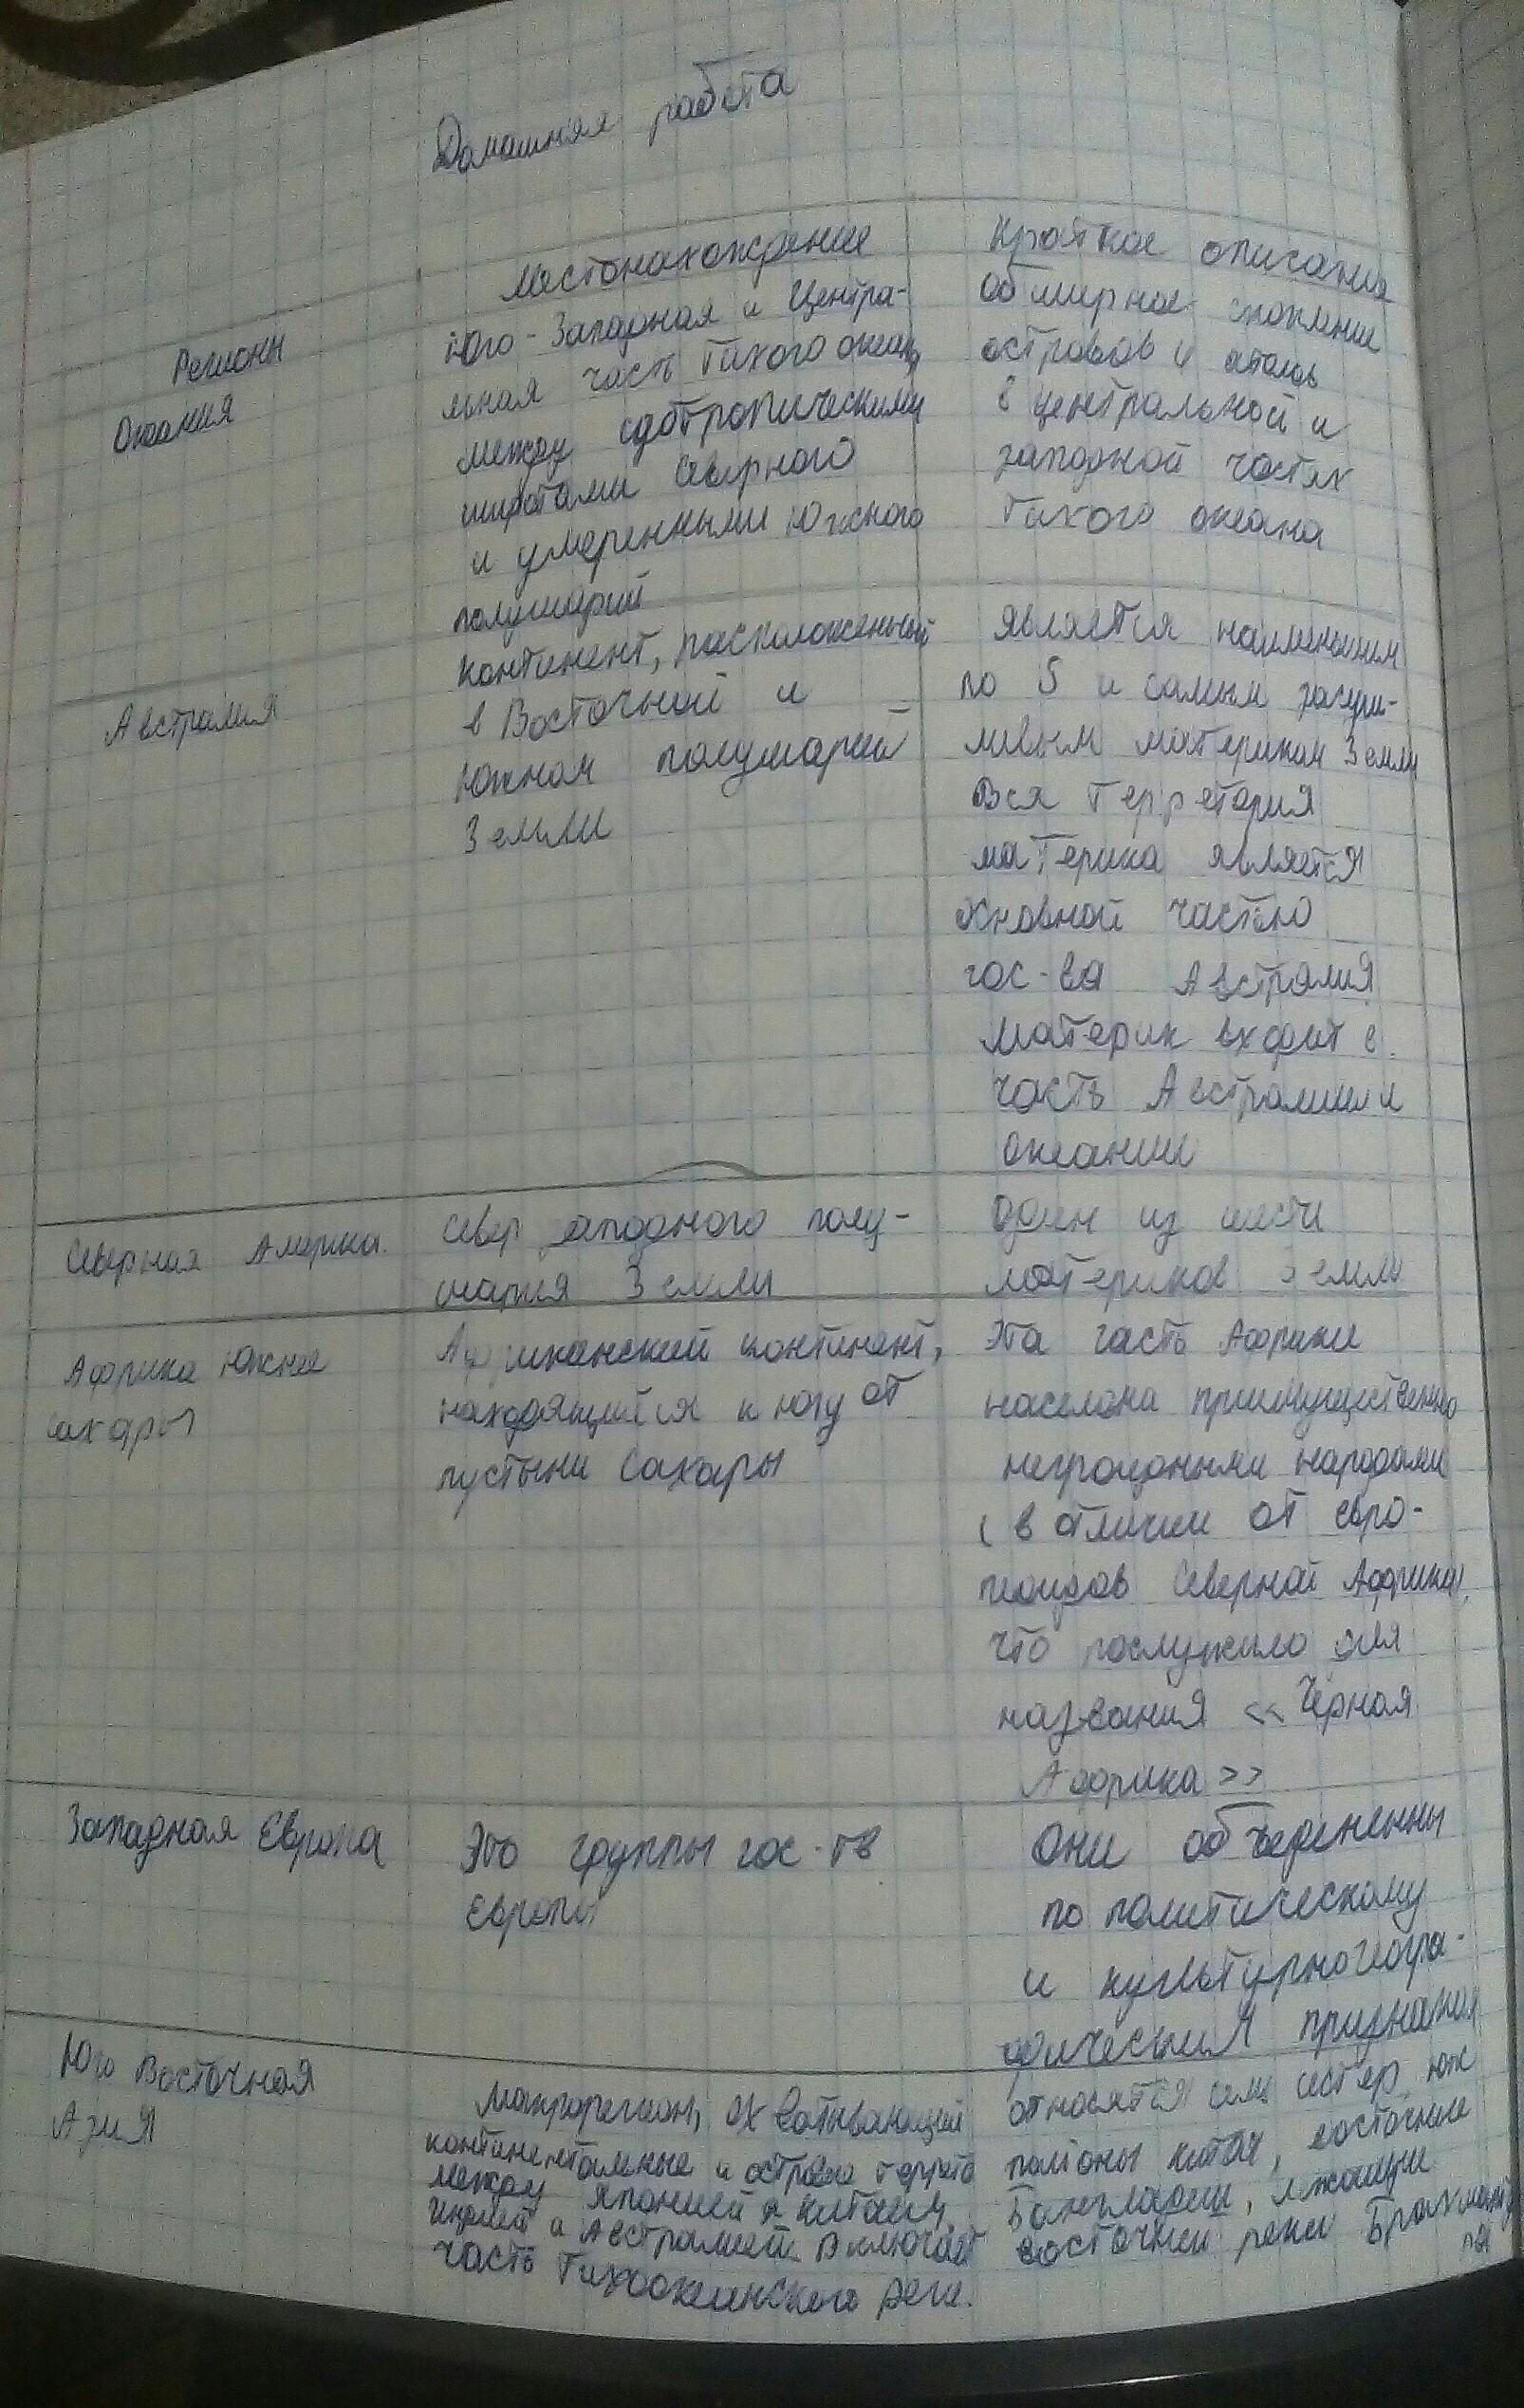 Домашняя работа
Регионы
Местонахождение
Краткое описания
Океания
Юго-Западная и Центра-
льная часть Тихого океан
между субтропическими
широтами Северного
и умеренными Южного
полушарий
Обширное скопление
островов и атолов
в центральной и
западной частях
Тихого океана
Австралия
континент, расположеный
в Восточной и
Южном полушарий
Земли
Является наименьшим
по S и самым засуш-
ливым материком Земли
Вся Терретория
материка является
основной частью
гос-ва Австралия
Материк входит в
часть Австралии и
Океании
Северная Америка
Север западного полу-
шария Земли
Один из шести
материков Земли
Африка Южнее
сахары
Африканский континент,
находящийся к югу от
пустыни Сахары
Эта часть Африки
населена приимущественно
негроидными народами
(в отличии от евро-
пеоидов Северной Африки)
что послужило для
названия <<Чёрная
Африка>>
Западная Европа
Это группы гос-тв
Европы
Они объедененны
по политическому
и культурногеогра-
фическим признакам
Юго Восточная
Азия
Макрорегион, охватывающий
континентальные и острова террето
между Японией и Китаем,
Индией и Австралией. Включает
часть Тихоокеанского реги.
относятся семь сестёр, юж
районы Китая, восточные
Бангладеш, лежащие
восточнее реки Брахмапут
ра